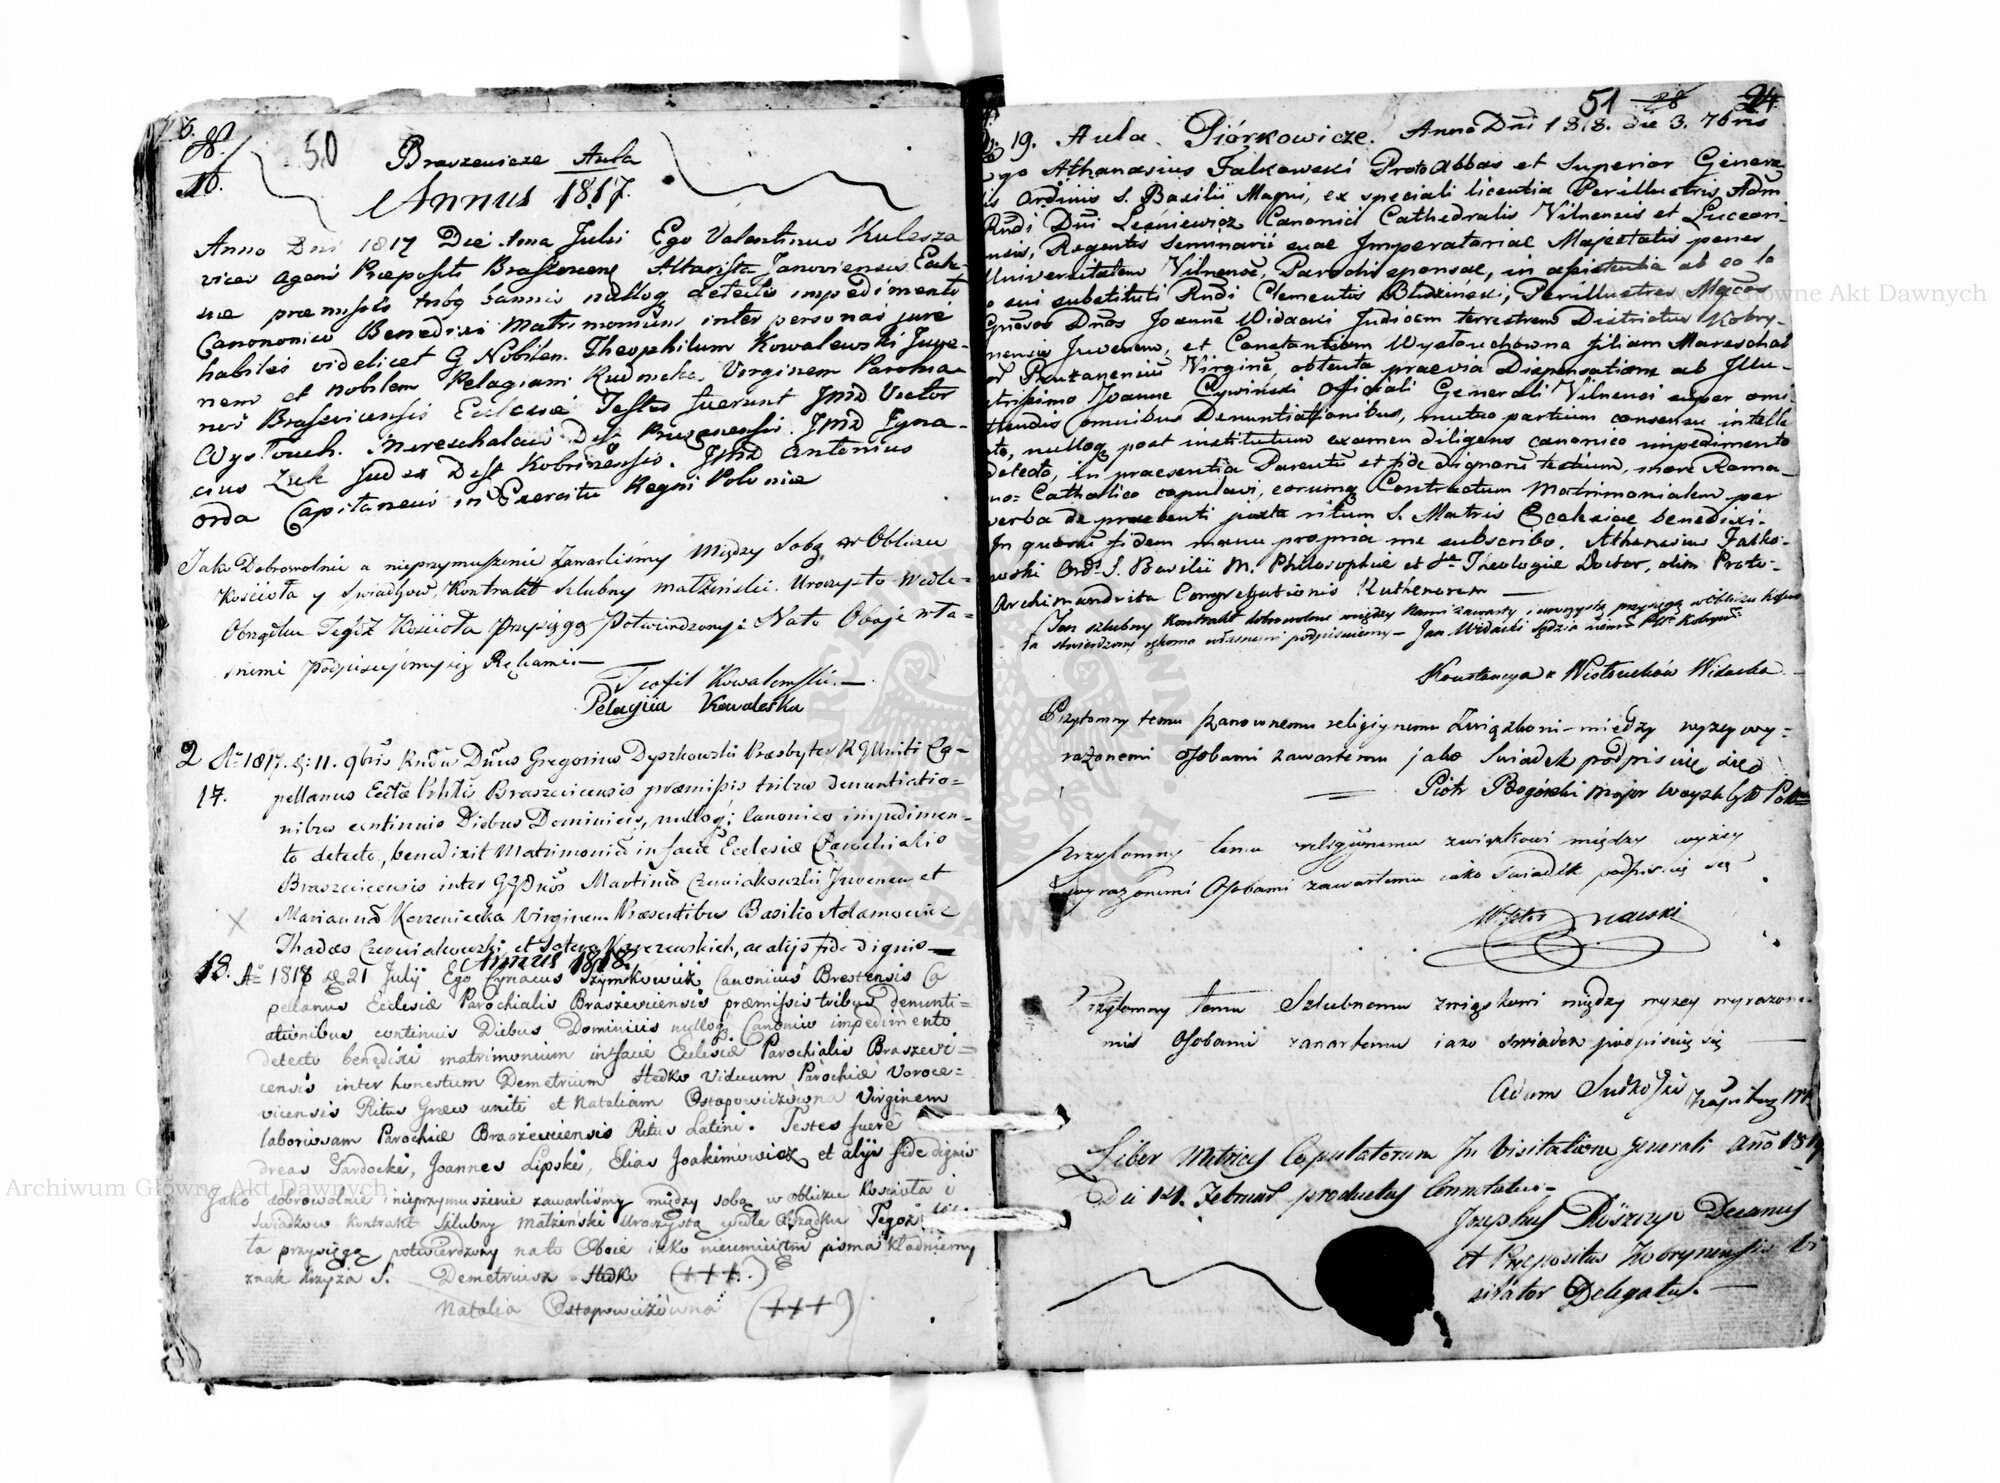 50
16.
Braszewicze Aula
Annus 1817.
Anno Dni 1817 Die 1ma Julii Ego Valentinus Kulesza
vices agens Præpositi Altarista Janoviensis Eccle-
siæ præmissis bannis nulloq detecto impedimento
Canononico Benedixi Matrimonium inter personas jure
habiles videlicet G Nobilem Theophilum Kowalewski Juve-
nem et nobilem Pelagiam Virginem Parochia-
nos Ecclesiæ Testes fuerunt Victor
Wysłouch.
cius Żuk Judex Kobrinensis. Antonius
Orda Capitaneus in Exercitu Regni Poloniæ
Jako Dobrowolnie a nieprzymuszenie Zawarliśmy Między Sobą w Obliczu
Kościoła y Świadków, Kontrakt szlubny małżeński Uroczysto Wedle-
Obrządku Tegoż Kościoła Przysięgą Potwierdzony: Nato Oboje wła-
snemi podpisujemy się Rękami —
Teofil Kowalewski. —
Pelagiia Kowaleska
2 Ao 1817. d: 11. 9bris Rndus Dnus Gregorius Dyszkowski Præsbyter R G Uniti Ca-
17. pellanus Braszevicensis præmissis tribus denuntiatio=
nibus continuis Diebus Dominicis, nulloq; Canonico impedimen-
to detecto, benedixit Matrimoniũ in facie Ecclesiæ Parochialis
Braszevicensis inter Martinũ Czerwiakowski Juvenem et
Mariannã Korzeniecka Virginem Præsentibus Basilio Adamowicz
Thadæo et alijs fide dignis —
Annus 1818.
18. Ao 1818 d 21 Julij Ego Cyriacus Szymkowicz Canonicus Brestensis Ca
pellanus Ecclesiæ Parochialis Braszeviciensis præmissis tribus denunti=
ationibus continuis Diebus Dominicis nulloq Canonico impedimento
detecto benedixi matrimonium in facie Ecclesiæ Parochialis Braszevi=
censis inter honestum Demetrium Hedko Viduum Parochiæ Voroce=
vicensis Ritus Græco uniti et Nataliam Ostapowiczówna Virginem
laboriosam Parochiæ Braszeviciensis Ritus Latini. Testes fuere
dreas Joannes Lipski, Elias Joakimowicz et alijs fide dignis
Jako dobrowolnie i nieprzymuszenie zawarliśmy między sobą w obliczu kościoła i
świadków kontrakt szlubny małżeński uroczystą wedle obrządku Tegoż
ła przysięgą potwierdzony na to Oboie iako nieumieiętni pisma kładniemy
znak krzyża S. Demetriusz Hedko (+++.)
Natalia Ostapowiczówna (+++)
51 28 24.
19. Aula. Piórkowicze. Anno Dni 1818. die 3. 7bris
Ego Athanasius Falkowski ProtoAbbas et Superior Genera
lis Ordinis S. Basilii Magni, ex speciali licentia Perillustris Adm
Rndi Dni Leśniewicz Canonici Cathedralis Vilnensis et Luceori-
ensis, Regentis Seminarii suae Imperatoriae Majestatis penes
Universitatem Vilnensem, Parochi sponsae, in assistentia ab eo lo
co sui substituti Rndi Clementis Perillustres Mgcos
Gnosos Dnos Joannem Widacki Judicem terrestrem Districtus Kobry-
nensis Juvenem, et Constantiam Wysłouchowna filiam Mareschal
ci Pruzanensis Virginẽ, obtenta praevia Dispensatione ab Illu-
strissimo Joanne Cywiński Officiali Generali Vilnensi super omi-
ttendis omnibus Denuntiationibus, mutuo partium consensu intelle
cto, nulloq post institutum examen diligens canonico impedimento
detecto, in praesentia Parentũ et fide dignorũ testium, more Roma-
no= Catholico copulavi, eorumq Contractum Matrimonialem per
verba de praesenti juxta ritum S. Matris Ecclesiae benedixi.
In quorũ fidem manu propria me subscribo. Athanasius Falko-
wski Ord. S. Basilii M. Philosophiae et S. Theologiae Doctor, olim Proto-
Archimandrita Congregationis Ruthenorum —
Ten szlubny kontrakt dobrowolnie między Nami zawarty i uroczystą przysięgą w Obliczu Kościo
ła stwierdzony rękoma własnemi podpisuiemy — Jan Widacki Sędzia Ptu Kobryń
Konstancya z Wisłouchów Widacka
Przytomny temu szanownemu religiynemu Związkowi — między wyżey wy=
rażonemi Osobami zawartemu jako Świadek podpisuię się
Piotr Bogórski Major Woysk
Przytomny temu religiynemu związkowi między wyżey
wyrażonemi Osobami zawartemu iako Świadek podpisuię się
Przytomny temu Szlubnemu związkowi między wyżey wyrażone
mi Osobami zawartemu iako świadek podpisuię się
Adam
Liber Metrices Copulatorum In Visitatione Generali Anno 1819
Die 14. Februar productus Connotatur —
Josephus Decanus
et Præpositus Kobrynensis Vi
sitator Delegatus. —
Archiwum Główne Akt Dawnych
Archiwum Główne Akt Dawnych